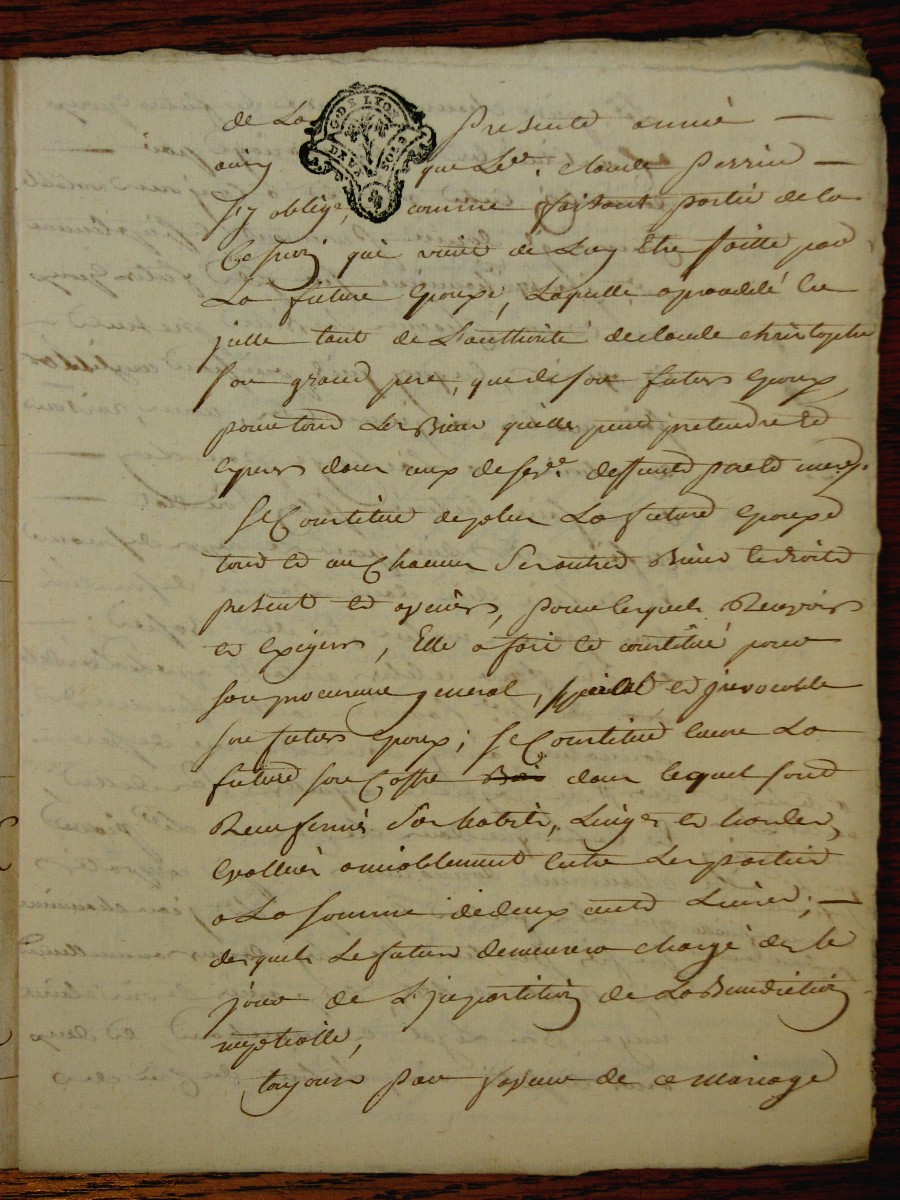 de La presente année
G. DE LYON
DEUX SOLS
ainsy que Led. Sr. claude perrin
s'y oblige, comme faisant partie de la
Cession qui vient de Luy Etre faitte par
La future Epouse, Laquelle a procédé En
jcelle tant de L'authorité de claude christophe
son grand pere, que de son futur Epoux,
pour tous Les Biens qu'elle peut pretendre Et
Esperer dans ceux de sesd. deffunts pere Et mere.
Se Constitue de plus La future Epouse
tous Et un Chacun Ses autres Biens Et droits
present Et avenirs, pour lesquels Recevoir
Et Exiger, Elle a fait Et constitué pour
son procureur general, special Et jrrevocable
son futur Epoux; Se Constitue Encore La
future son Coffre dans lequel sont
Renfermés Ses habits, Linges Et hardes,
Evallués amiablement Entre Les parties
a La somme de deux cents Livres;
desquels Le futur demeurera chargé des le
jour de L'jmpartition de La Benediction
nuptialle,
toujours par faveur de ce mariage